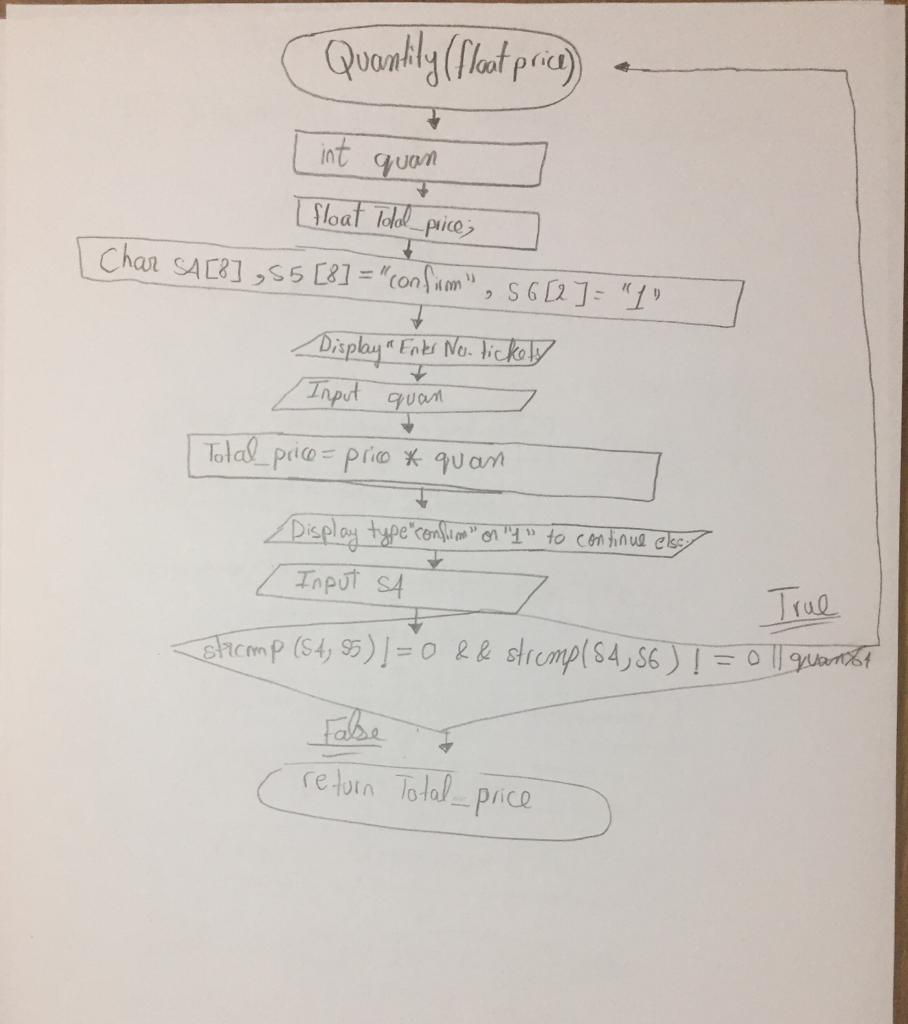 Quantity(float price)
int quan
float Total_price;
Char S4[8], S5[8]="confirm", S6[2]= "1"
Display "Enter No. tickets
Input quan
Total_price = price * quan
Display type "confirm" or "1" to continue else
Input S4
True
strcmp(S4, S5) != 0 && strcmp(S4, S6) != 0 ||
False
return Total_price